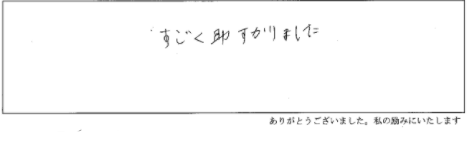 すごく助すかりました
ありがとうございました。私の励みにいたします